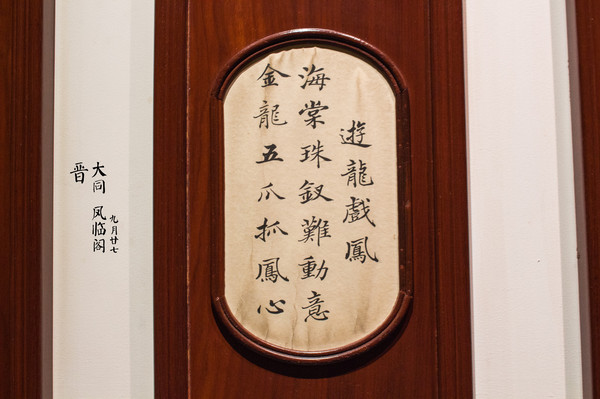 遊龍戲鳳
海棠珠釵難動意
金龍五爪抓鳳心
九月廿七
大同 凤临阁
晋